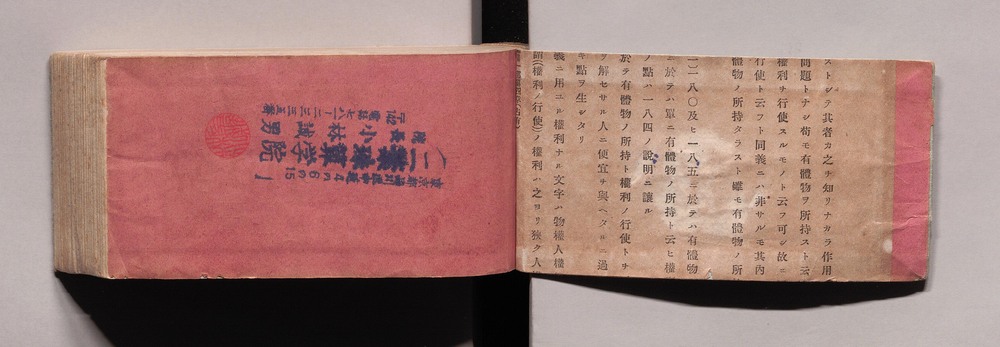 ストシテ其者カ之チ知リナカラ作用
問題トナシ苟モ有體物ヲ所持スト云
權利チ行使スルモノト云フ可シ故ニ
行使ト云フト同義ニハ非サルモ其內
體物ノ所持タラスト雖モ有體物ノ所
一八〇及ヒ一一八五ニ於テハ有體物
ニ於テハ單ニ有體物ノ所持ト云ヒ權
ノ點ハ一一八四ノ說明ニ讓ル
於テ有體物ノ所持ト權利ノ行使トチ
解セサル人ニ便宜チ與ヘタルニ過
キ點ヲ生シタリ
義ニ用ユル權利ナル文字ハ物權人權
謂(權利ノ行使)ノ權利ハ之ヨリ狹ク人
東京都品川区中延4の6の15
二葉珠算学院
院長 小林誠男